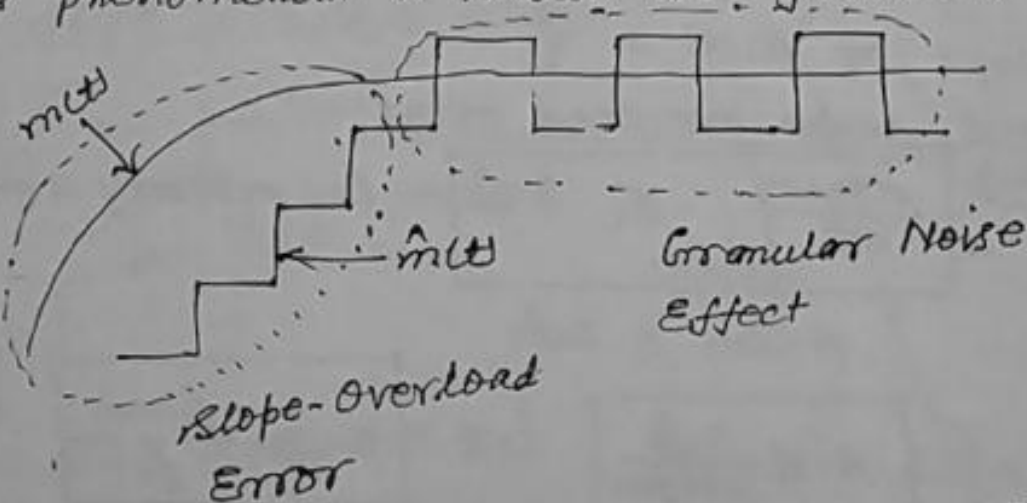 phenomenon
m(t)
m̂(t)
Granular Noise
Effect
Slope-Overload
Error